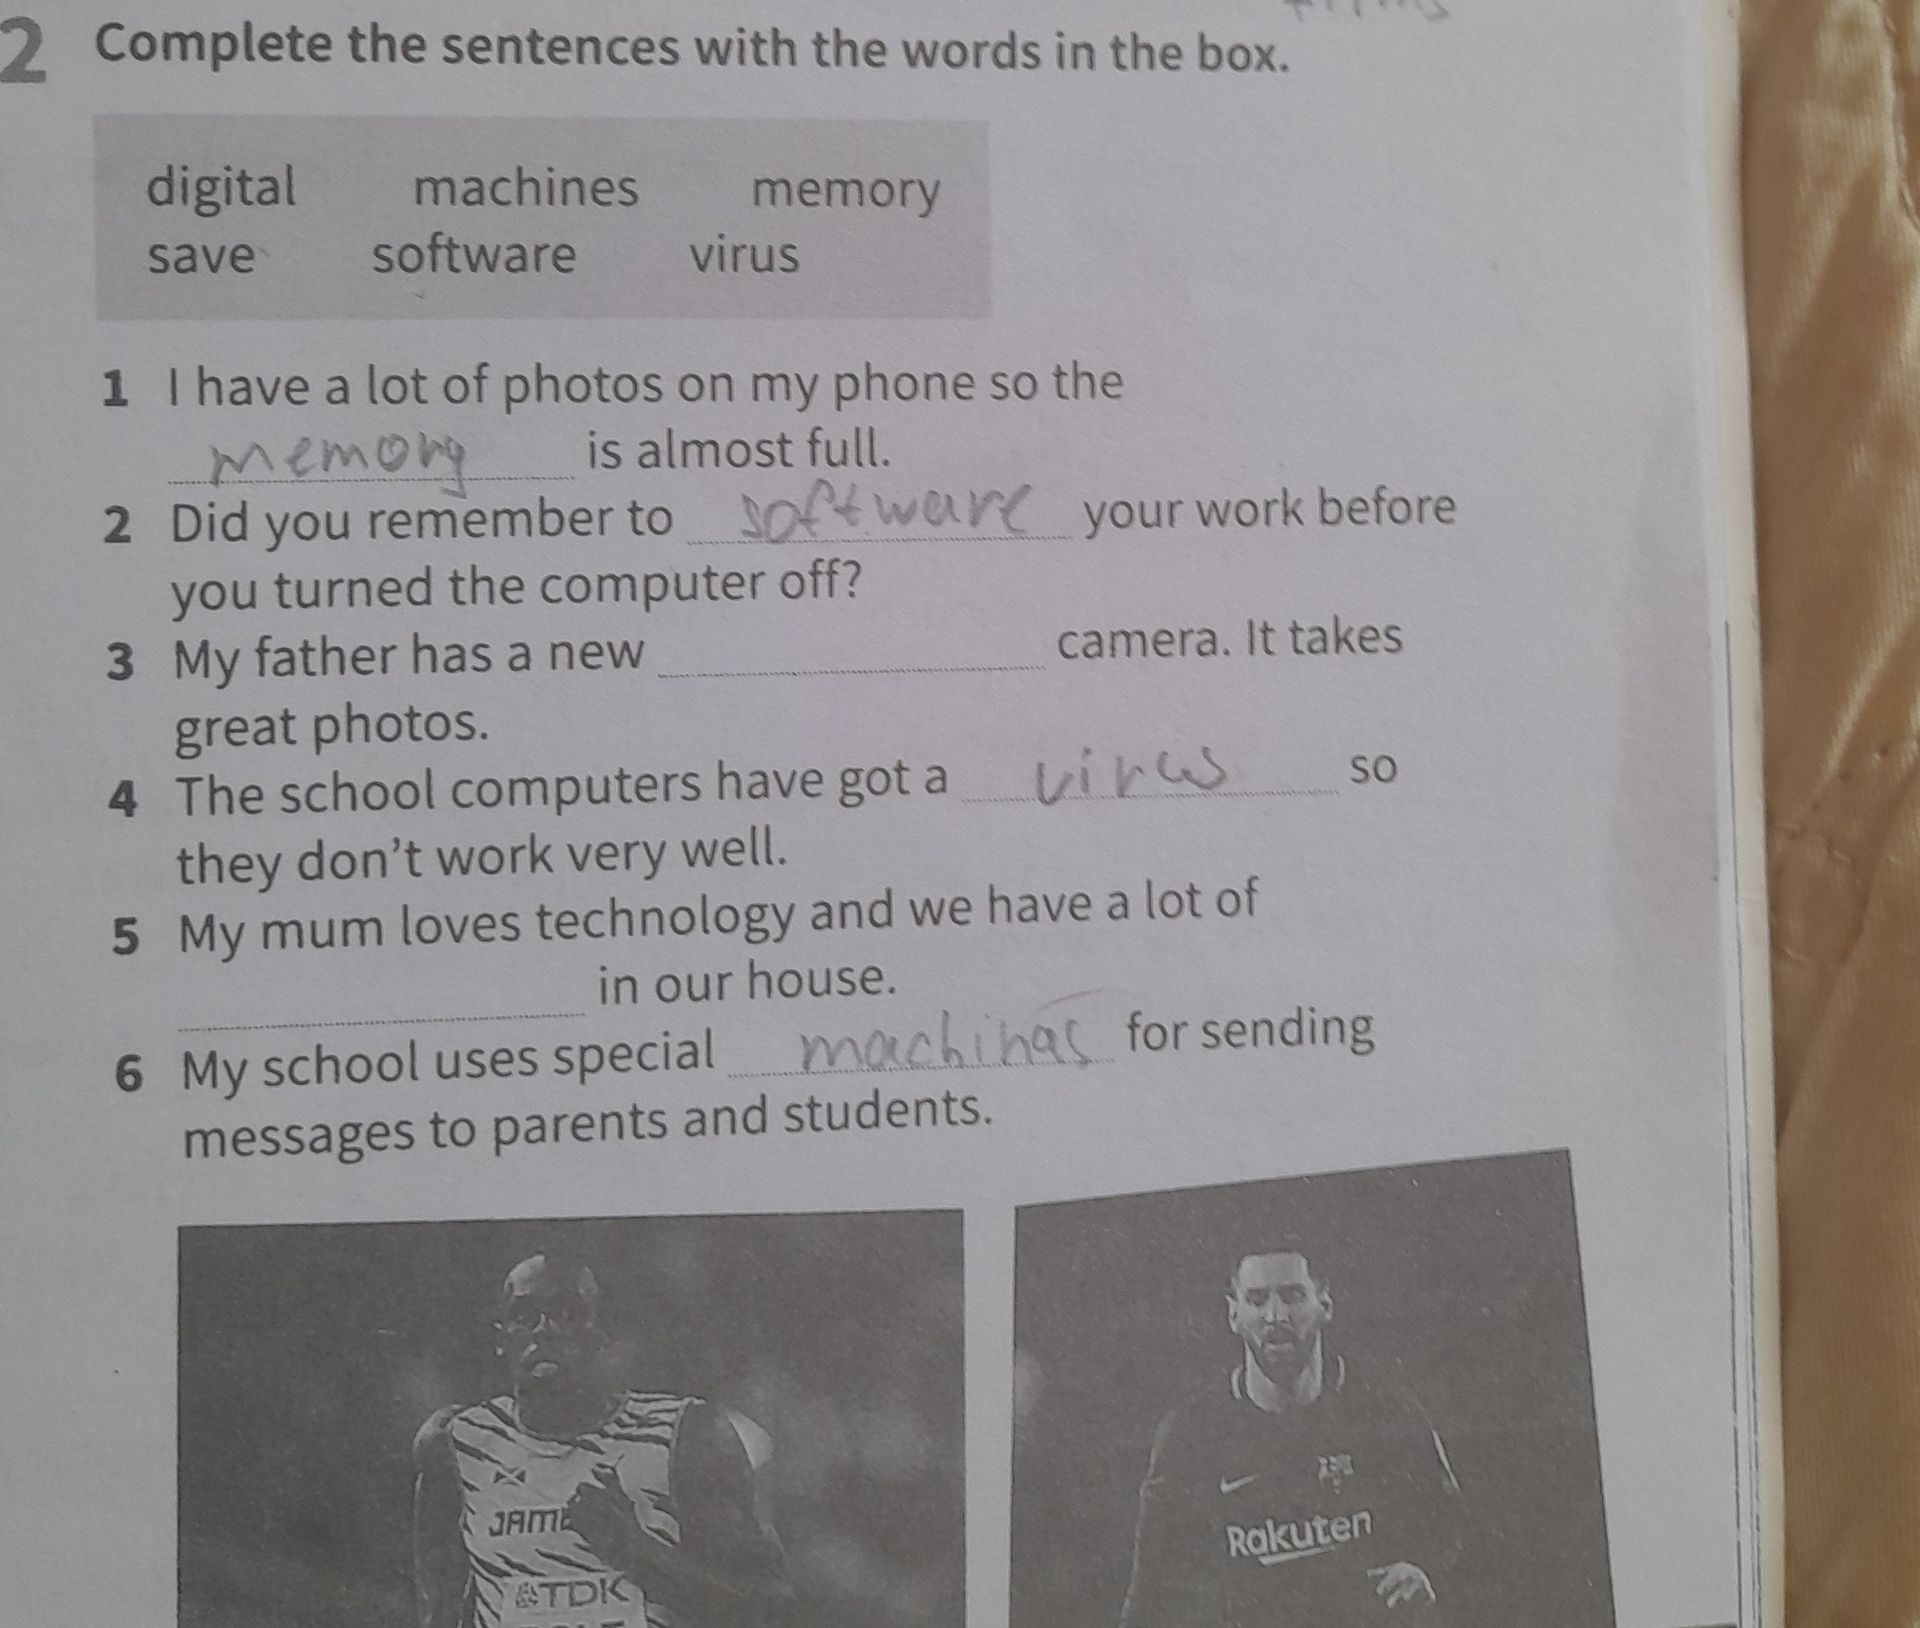 2 Complete the sentences with the words in the box.
digital machines memory
save software virus
1 I have a lot of photos on my phone so the
memory is almost full.
2 Did you remember to software your work before
you turned the computer off?
3 My father has a new camera. It takes
great photos.
4 The school computers have got a virus so
they don't work very well.
5 My mum loves technology and we have a lot of
in our house.
6 My school uses special machinas for sending
messages to parents and students.
JAM
TDK
Rakuten